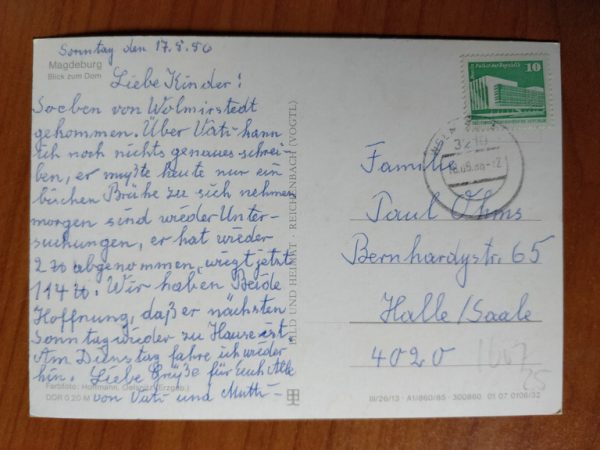 Sonntag den 17.8.86
Magdeburg
Blick zum Dom
Liebe Kinder!
Soeben von Wolmirstedt
gekommen. Über Vati kann
ich noch nichts genaues schrei-
ben, er mußte heute nur ein
bißchen Brühe zu sich nehmen
morgen sind wieder Unter-
suchungen, er hat wieder
2 ℔ abgenommen, wiegt jetzt
114 ℔. Wir haben Beide
Hoffnung, daß er nächsten
Sonntag wieder zu Hause ist.
Am Dienstag fahre ich wieder
hin. Liebe Grüße für Euch Alle
von Vati und Mutti-
Farbfoto: Hoffmann, Oelsnitz (Erzgeb.)
DDR 0,20 M
BILD UND HEIMAT · REICHENBACH (VOGTL)
10
3210
Familie
Paul Ohms
Bernhardystr. 65
Halle/Saale
4020
III/26/13 · A1/860/85 · 300860 01 07 0106/32